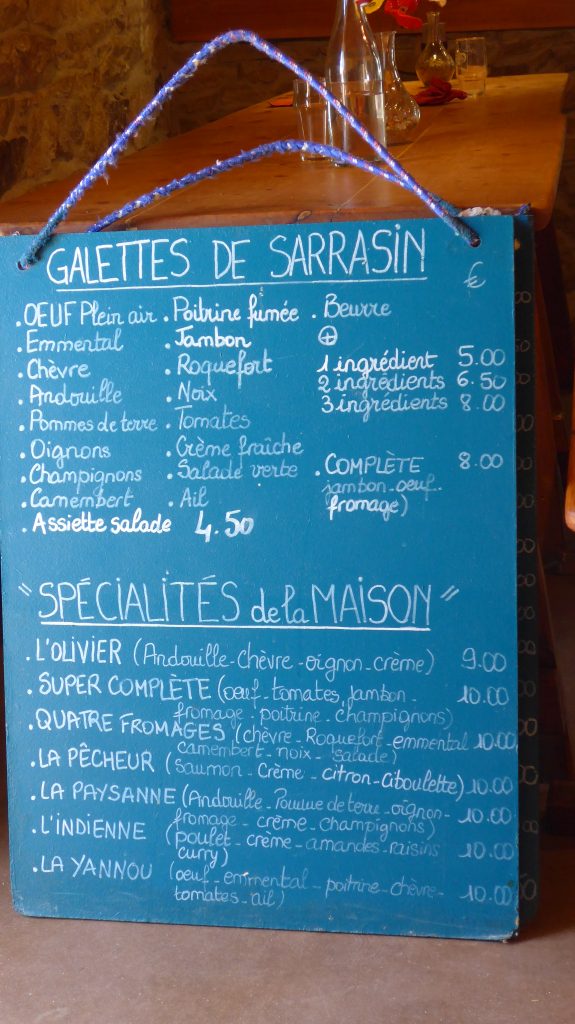 GALETTES DE SARRASIN €
. OEUF Plein air . Poitrine fumée . Beurre
. Emmental . Jambon ⊕
. Chèvre . Roquefort 1 ingrédient 5.00
. Andouille . Noix 2 ingrédients 6.50
. Pommes de terre . Tomates 3 ingrédients 8.00
. Oignons . Crème fraîche
. Champignons . Salade verte . COMPLÈTE 8.00
. Camembert . Ail jambon-oeuf-
. Assiette salade 4.50 fromage)
"SPÉCIALITÉS de la MAISON"
. L'OLIVIER (Andouille-chèvre-oignon-crème) 9.00
. SUPER COMPLÈTE (oeuf-tomates, jambon- 10.00
fromage-poitrine-champignons)
. QUATRE FROMAGES (chèvre-Roquefort-emmental 10.00
camembert-noix-salade)
. LA PÊCHEUR (Saumon-Crème-citron-ciboulette) 10.00
. LA PAYSANNE (Andouille-Pomme de terre-oignon- 10.00
fromage-crème-champignons)
. L'INDIENNE (poulet-crème-amandes-raisins 10.00
curry)
. LA YANNOU (oeuf-emmental-poitrine-chèvre- 10.00
tomates-ail)